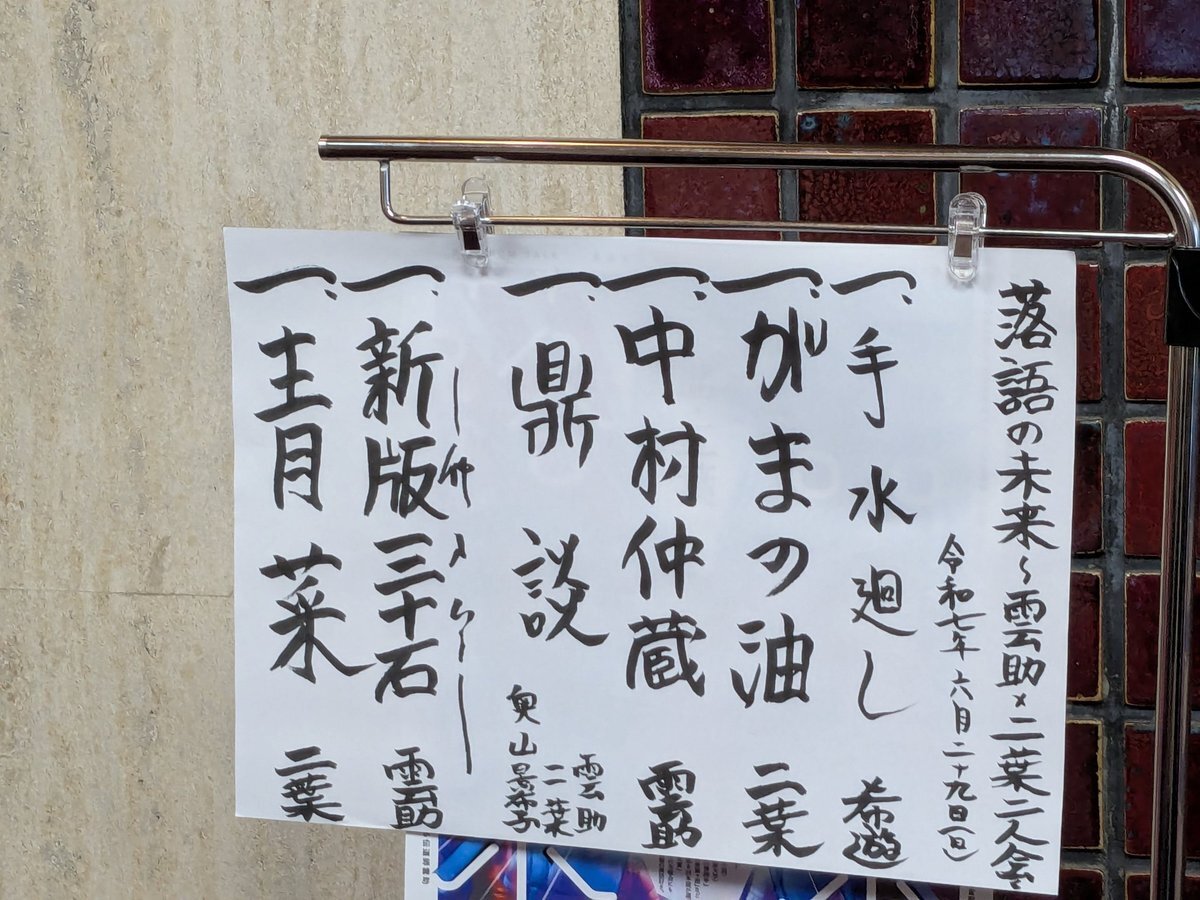 落語の未来～雲助×二葉二人会
令和七年六月二十九日(日)
一、手水廻し 希遊
一、がまの油 二葉
一、中村仲蔵 雲助
一、鼎説 雲助 二葉 奥山景布子
―仲入り―
一、新版三十石 雲助
一、青菜 二葉